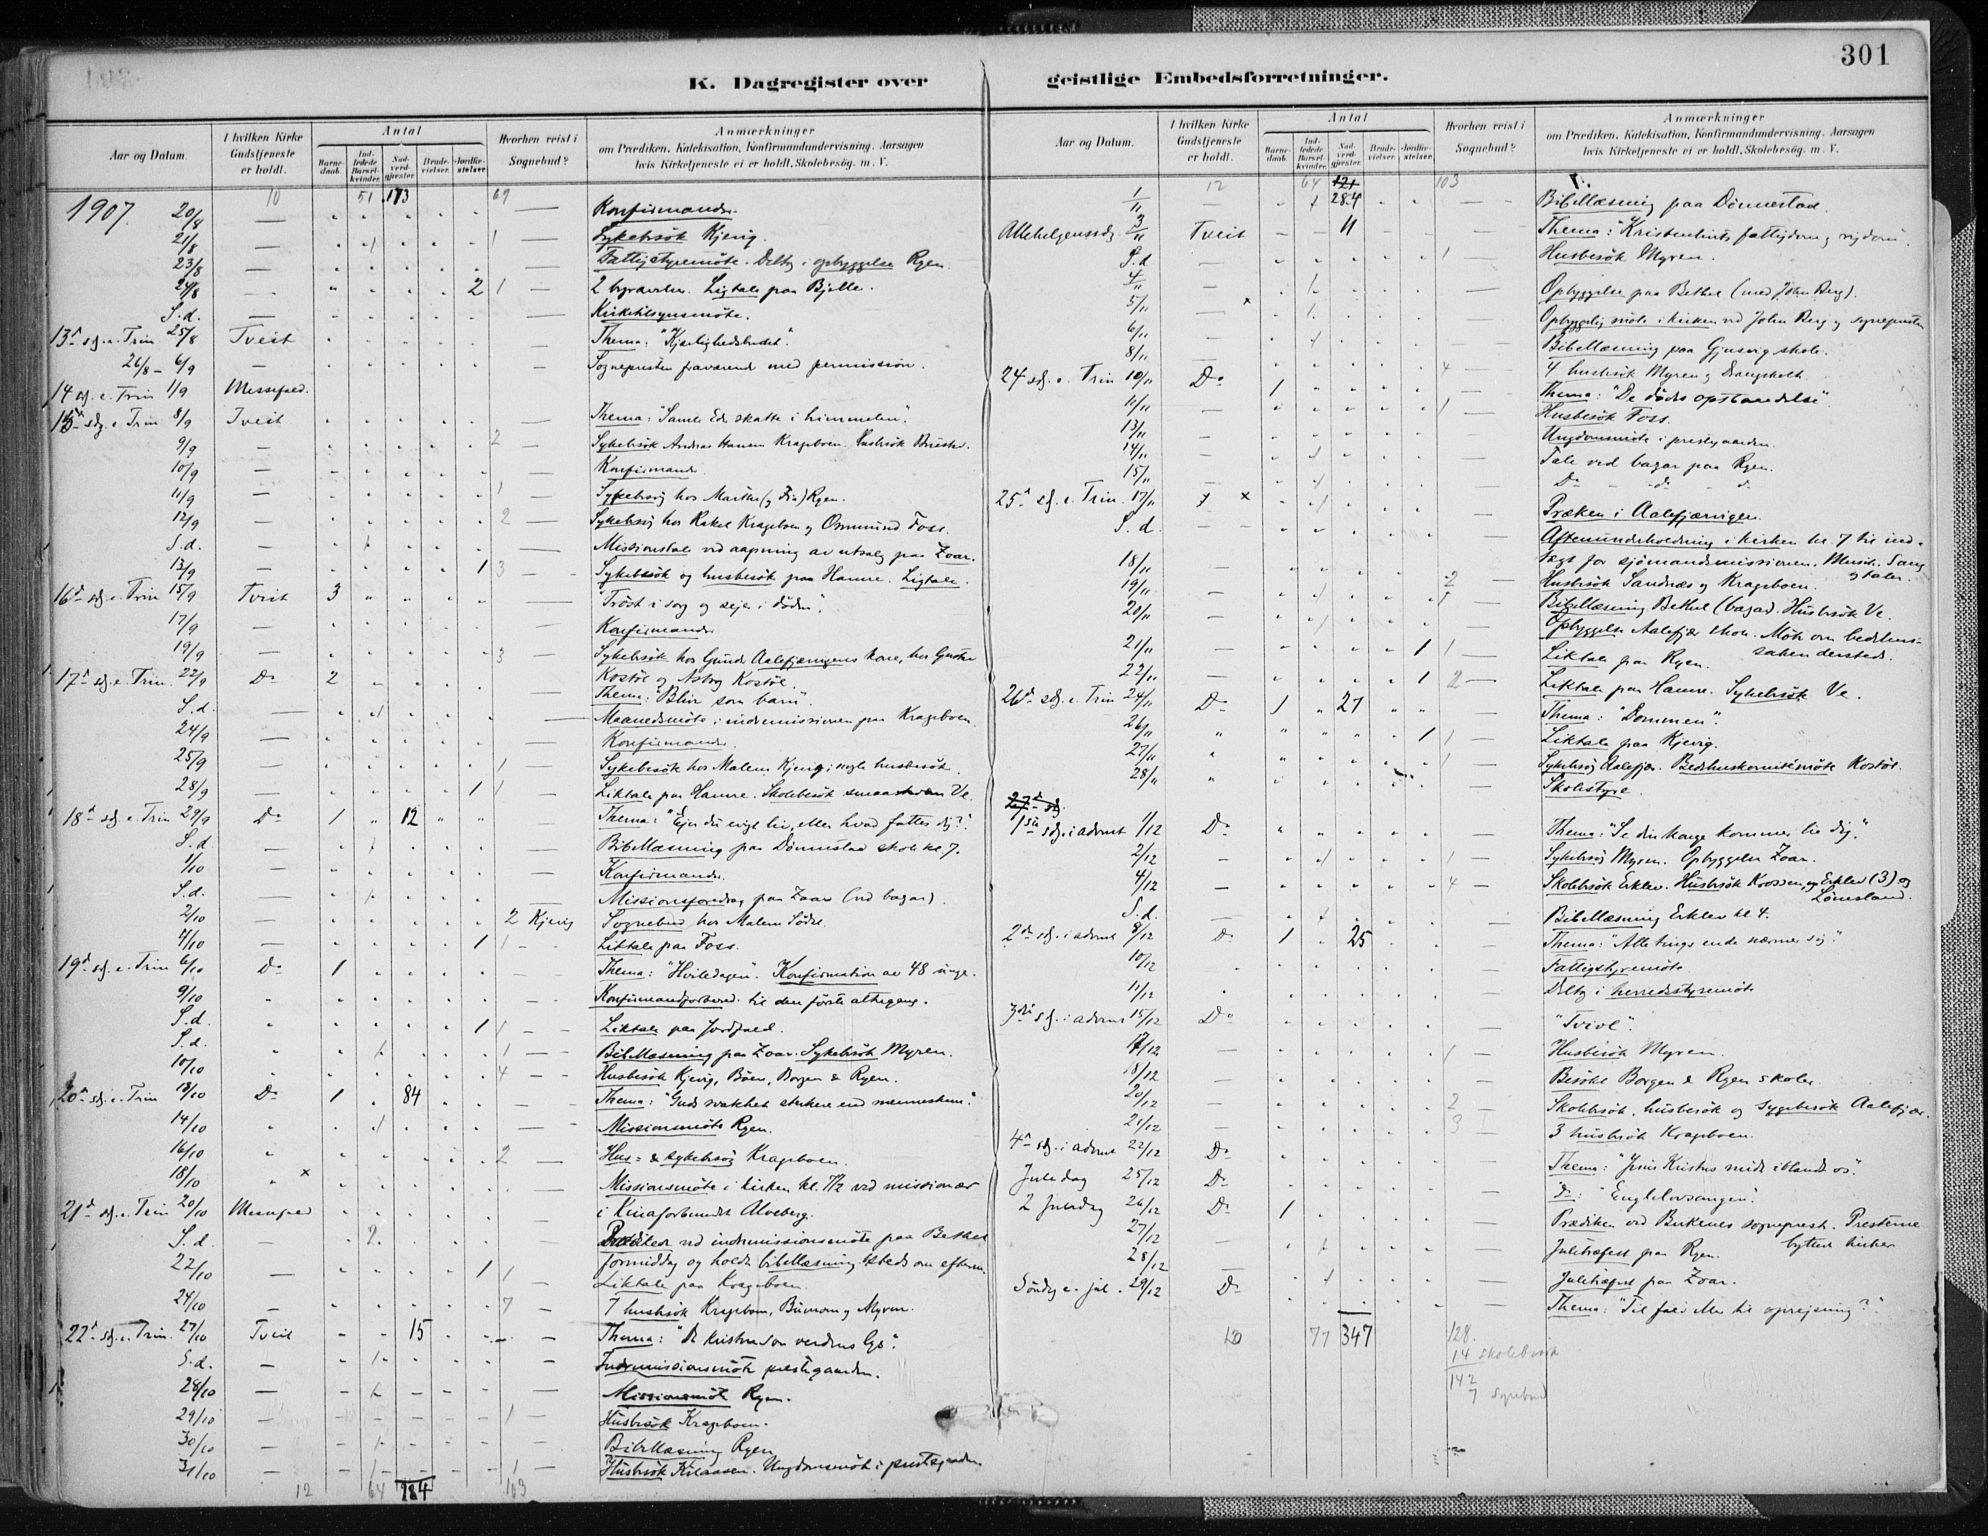 301
K. Dagregister over geistlige Embedsforretninger.
Aar og Datum.
I hvilken Kirke Gudstjeneste er holdt.
Antal
Barnedaab.
Indledede Barselkvinder.
Nadverdgjester.
Brudevielser.
Jordfæstelser.
Hvorhen reist i Sognebud?
Anmærkninger
om Prædiken, Katekisation, Konfirmandundervisning, Aarsagen
hvis Kirketjeneste ei er holdt, Skolebesøg. m. V.
10 51 173 69
1907. 20/8 — Konfirmander.
21/8 — 1 — Sykebesök Kjevig.
23/8 — Fattigstyremöte. Deltog i opbyggelse Ryen.
24/8 — 2 1 — 2 begravelser. Ligtale paa Bjelle.
S.d. — Kirketilsynsmöte.
13d sdg. e. Trin 25/8 Tveit Thema: "Kjærlighedsbudet".
26/8 – 6/9 — Sognepresten fraværende med permission.
14 sdg. e. Trin 1/9 Messefald.
15d sdg. e. Trin 8/9 Tveit Thema: "Samle Eder skatte i himmelen".
9/9 — 2 — Sykebesök Andreas Hansen Krageboen. Husbesök
10/9 — Konfirmander
11/9 — 1 — Sykebesög hos Marthe Ryen.
12/9 — 2 — Sykebesög hos Rakel Krageboen og Osmund Foss.
S.d. — Missionstale ved aapning av utsalg paa Zoar.
13/9 — 1 3 — Sykebesök og husbesök paa Hamre. Ligtale.
16d sdg. e. Trin 15/9 Tveit 3 "Tröst i sorg og sejer i döden".
17/9 — Konfirmander
19/9 — 3 — Sykebesök hos Gunde Aalefjærvigens kone, hos Gustav
17d sdg. e. Trin. 22/9 Do 2 Kostöl og Kostöl.
Thema: "Bliv som barn"
S.d. — Maanedsmöte i indremissionen paa Krageboen.
24/9 — Konfirmander.
25/9 — 1 — Sykebesök hos Malene Kjevig; nogle husbesök.
28/9 — 1 1 — Liktale paa Hamre. Skolebesök smaaskolen Ve.
18d sdg. e. Trin 29/9 Do 1 12 Thema: "Ejer du evigt liv, eller hvad fattes dig?".
S.d. — Bibellæsning paa Dönnestad skole kl. 7.
1/10 — Konfirmander.
S.d. — Missionsforedrag paa Zoar (ved bazar).
2/10 — 2 Kjevig Sognebud hos Malene
4/10 — 1 1 — Liktale paa Foss.
19d sdg. e. Trin 6/10 Do 1 Thema: "Hviledagen". Konfirmation av 48 unge.
9/10 Konfirmandforbered. til den förste altergang.
S.d. 1 1 — Liktale paa Jordfald.
S.d. 1 — Bibellæsning paa Zoar. Sykebesök Myren.
10/10 4 — Husbesök Kjevig, Böen, Borgen & Ryen.
20d sdg. e. Trin 13/10 Do 1 84 Thema: "Guds svakhet sterkere end menneskene".
14/10 Missionsmöte Ryen.
16/10 2 — Hus- & sykebesög Krageboen.
18/10 x Missionsmöte i kirken kl. 7½ ved missionær
21d sdg. e. Trin 20/10 Messefald i Kinaforbundet Alveberg.
S.d. 2 Prædikede ved indremissionsmöte paa Bethel
formiddag og holdt bibellæsning steds om efterm.
22/10 — 1 1 Liktale paa Krageboen
24/10 7 — 7 husbesök Krageboen, og Myren.
22d sdg. e. Trin. 27/10 Tveit 15 Thema: "De kristne som verdens lys".
S.d. — Indremissionsmöte prestegaarden.
28/10 — Missionsmöte Ryen.
29/10 — 1 — Husbesök Krageboen.
30/10 — Bibellæsning Ryen
31/10 — 1 Husbesök Ungdomsmöte i prestegaarden
12 64 284 103
Aar og Datum.
I hvilken Kirke Gudstjeneste er holdt.
Antal
Barnedaab.
Indledede Barselkvinder.
Nadverdgjester.
Brudevielser.
Jordfæstelser.
Hvorhen reist i Sognebud?
Anmærkninger
om Prædiken, Katekisation, Konfirmandundervisning, Aarsagen
hvis Kirketjeneste ei er holdt, Skolebesög. m. V.
12 64 121 103
1/11 — 284 — Bibellæsning paa Dönnestad.
Allehelgenssdg. 3/11 Tveit 11 Thema: "Kristenlivets fattigdom og rigdom".
S.d 1 — Husbesök Myren.
4/11 — Opbyggelse paa Bethel (med John Berg).
5/11 x Opbyggelig möte i kirken ved John Berg og sognepresten
6/11 — Bibellæsning paa Gjusvig skole.
8/11 — 4 — 4 husbesök Myren og Drangsholt.
24 sdg. e. Trin 10/11 Do 1 Thema: "De dödes opstandelse"
11/11 — 1 — Husbesök Foss.
13/11 — Ungdomsmöte i prestgaarden.
14/11 — Tale ved bazar paa Ryen.
15/11 — Do d. d.
25d sdg. e. Trin. 17/11 x Præken i Aalefjærvigen.
S.d. — Aftenunderholdning i kirken kl. 7 til ind-
tægt for sjömandsmissionen. Musik. Sang og taler.
18/11 — 2 — Husbesök Sandnæs og Krageboen.
19/11 — 1 — Bibellæsning Bethel (bazar). Husbesök Ve.
20/11 — Opbyggelse Aalefjær skole. Möte om bedehus-
saken dersteds.
21/11 — 1 1 — Liktale paa Ryen.
22/11 — 1 2 — Liktale paa Hamre. Sykebesök Ve.
26d sdg. e. Trin 24/11 Do 1 27 Thema: "Dommen".
26/11 1 1 — Liktale paa Kjevig.
27/11 1 — Sykebesög Aalefjær. Bedehuskomitemöte Kostöl.
28/11 Skolestyre.
27d sdg.
1ste sdg. i advent 1/12 Do Thema: "Se din konge kommer til dig".
2/12 — 1 — Sykebesög Myren. Opbyggelse Zoar.
4/12 — 4 — Skolebesök Erklev. Husbesök og Erklev (3) og
S.d. — Bibellæsning Erklev kl 4.
2den sdg. i advent 8/12 Do 1 25 Thema: "Alle tings ende nærmer sig".
10/12 Fattigstyremöte
11/12 Deltog i herredsstyremöte
3die sdg. i advent 15/12 Do "Tvivl".
17/12 — 1 — Husbesök Myren.
18/12 — Besökt Borgen & Ryen skoler.
20/12 — 2 — Skolebesök, husbesök og sygebesök Aalefjær.
21/12 — 3 — 3 husbesök Krageboen.
4d sdg. i advent 22/12 Do Thema: "Jesus Kristus midt iblandt os".
Juledag 25/12 Do Do: "Englelovsangen".
2 Juledag 26/12 Do 1 Prædiken ved Birkenes sogneprest. Presterne
byttede kirker
27/12 — Juletræfest paa Ryen.
28/12 — Juletræfest paa Zoar.
Söndag e. jul. 29/12 Do Thema: "Til fald eller til oprejsning?"
77 347 128.
14 skolebesök
142
7